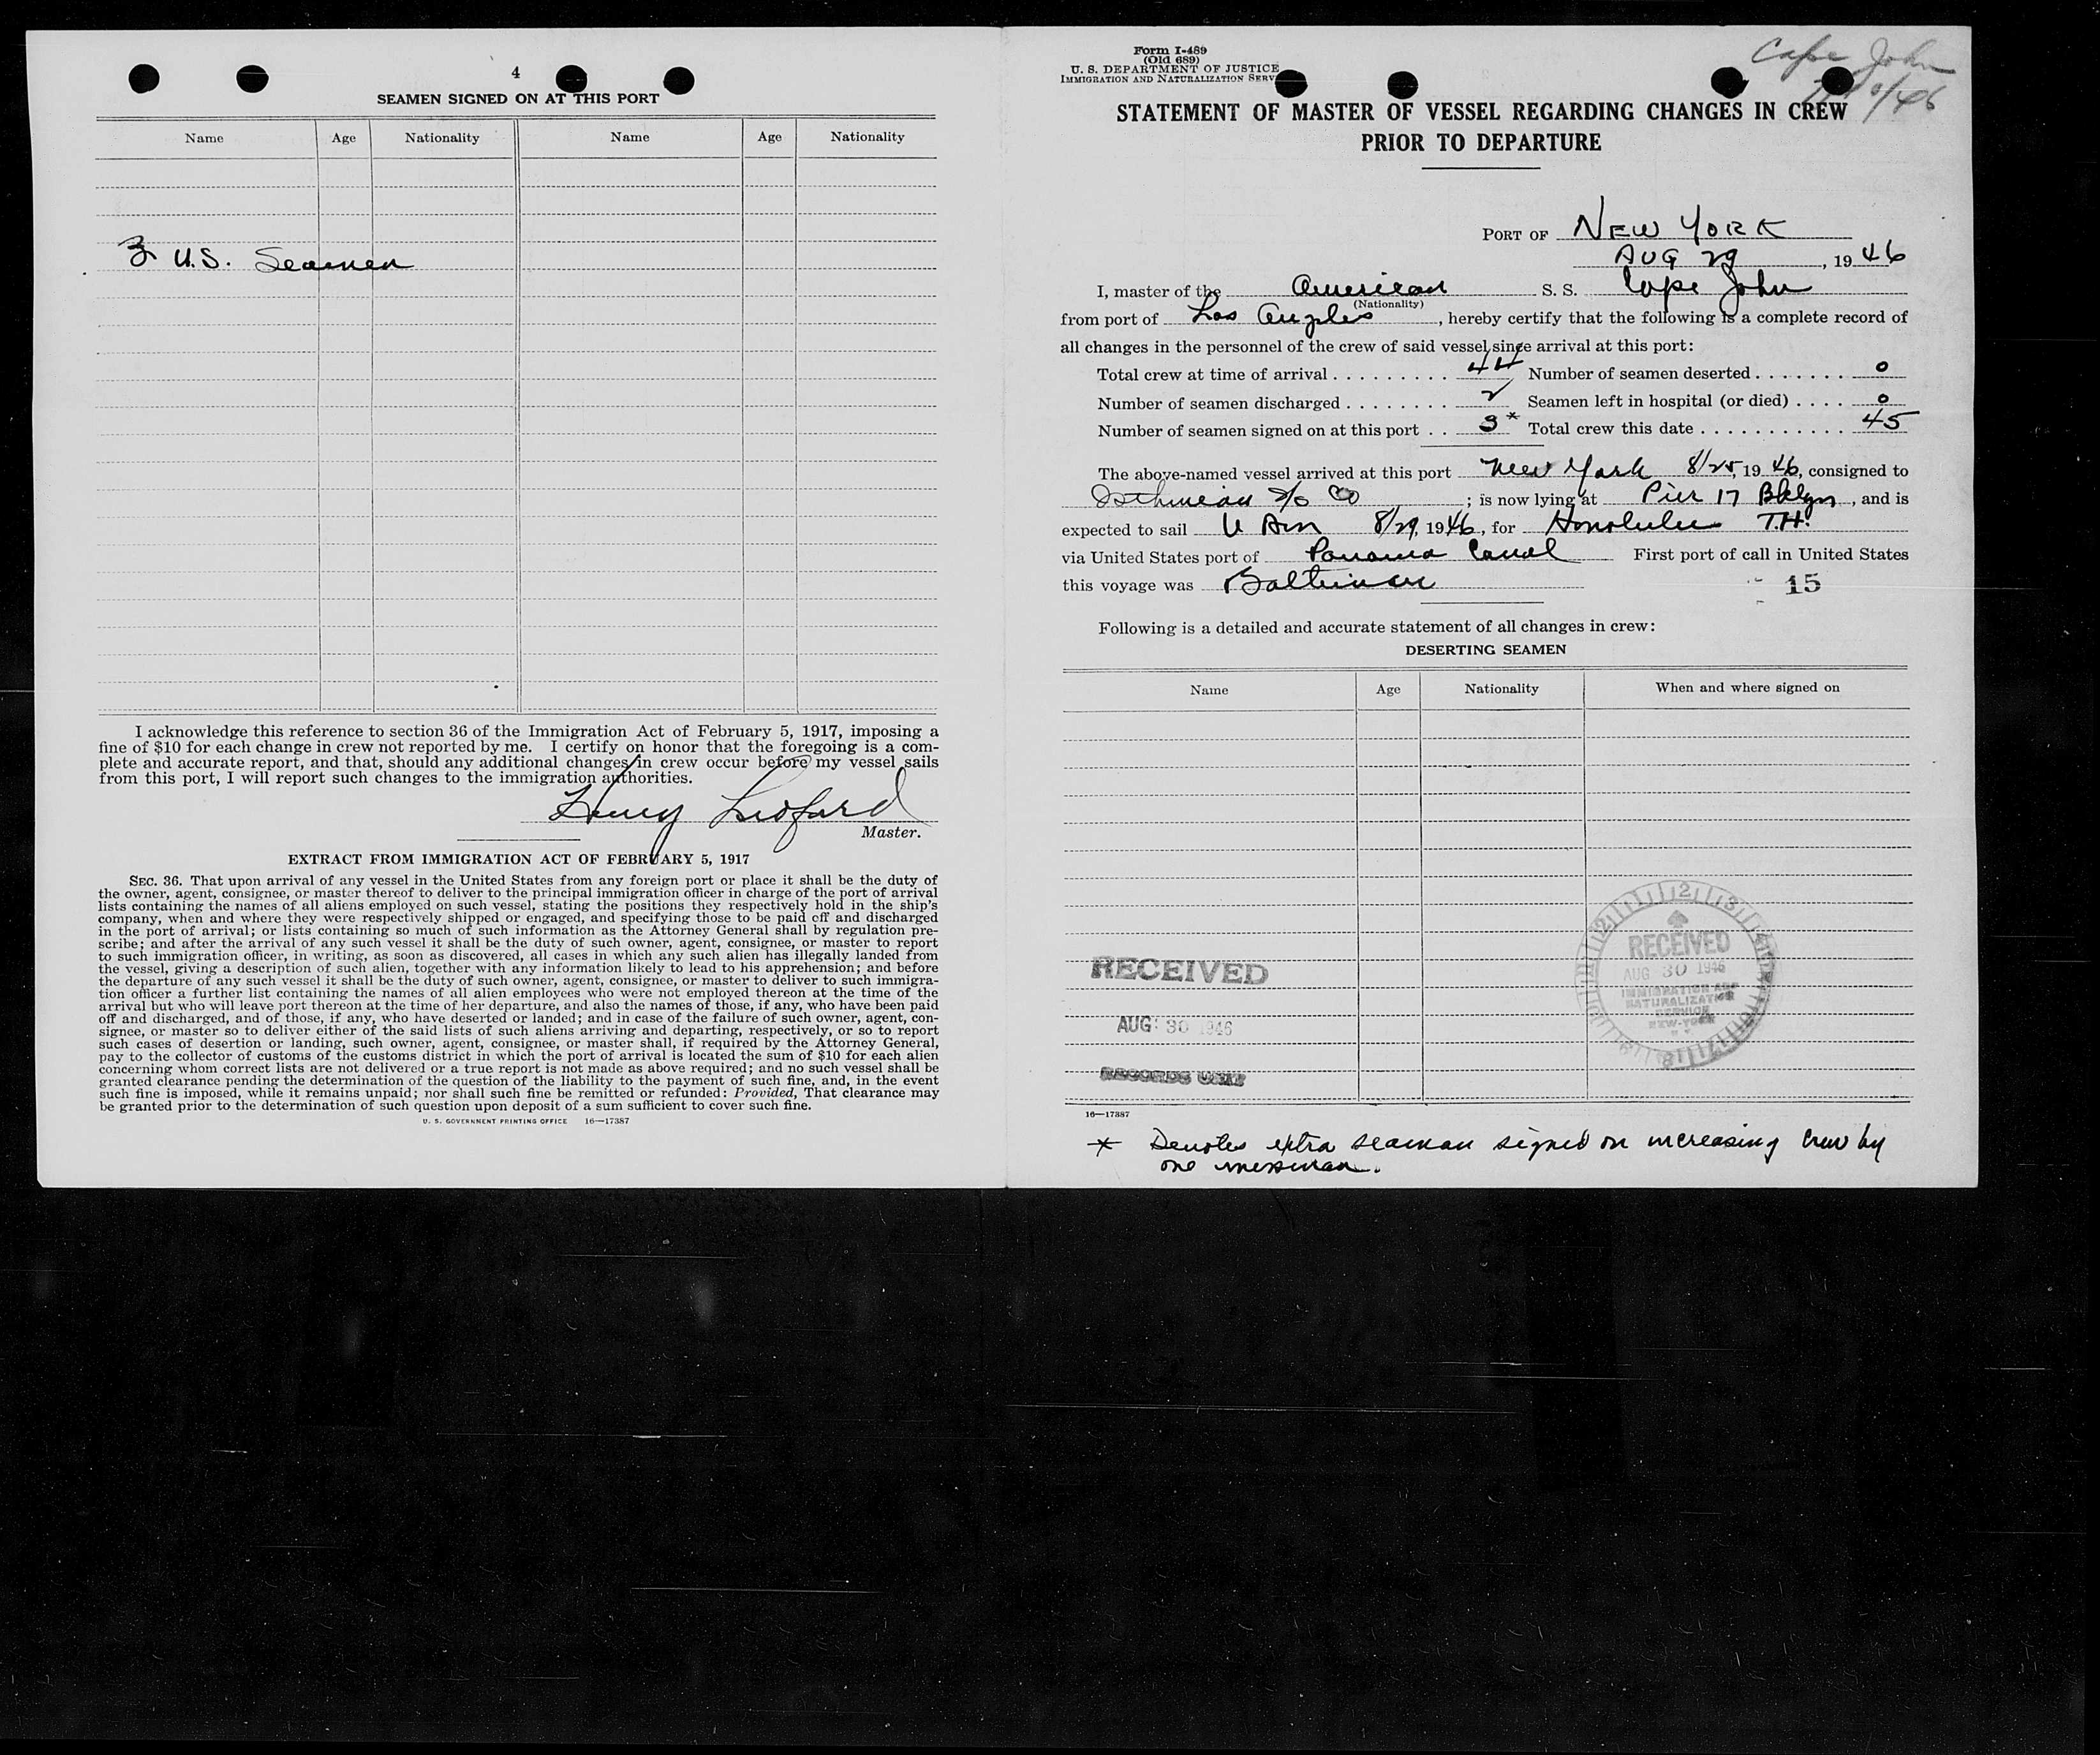 4
SEAMEN SIGNED ON AT THIS PORT
Name Age Nationality Name Age Nationality
3 U.S. Seamen
I acknowledge this reference to section 36 of the Immigration Act of February 5, 1917, imposing a
fine of $10 for each change in crew not reported by me. I certify on honor that the foregoing is a com-
plete and accurate report, and that, should any additional changes in crew occur before my vessel sails
from this port, I will report such changes to the immigration authorities.
Henry
Master.
EXTRACT FROM IMMIGRATION ACT OF FEBRUARY 5, 1917
SEC. 36. That upon arrival of any vessel in the United States from any foreign port or place it shall be the duty of
the owner, agent, consignee, or master thereof to deliver to the principal immigration officer in charge of the port of arrival
lists containing the names of all aliens employed on such vessel, stating the positions they respectively hold in the ship's
company, when and where they were respectively shipped or engaged, and specifying those to be paid off and discharged
in the port of arrival; or lists containing so much of such information as the Attorney General shall by regulation pre-
scribe; and after the arrival of any such vessel it shall be the duty of such owner, agent, consignee, or master to report
to such immigration officer, in writing, as soon as discovered, all cases in which any such alien has illegally landed from
the vessel, giving a description of such alien, together with any information likely to lead to his apprehension; and before
the departure of any such vessel it shall be the duty of such owner, agent, consignee, or master to deliver to such immigra-
tion officer a further list containing the names of all alien employees who were not employed thereon at the time of the
arrival but who will leave port thereon at the time of her departure, and also the names of those, if any, who have been paid
off and discharged, and of those, if any, who have deserted or landed; and in case of the failure of such owner, agent, con-
signee, or master so to deliver either of the said lists of such aliens arriving and departing, respectively, or so to report
such cases of desertion or landing, such owner, agent, consignee, or master shall, if required by the Attorney General,
pay to the collector of customs of the customs district in which the port of arrival is located the sum of $10 for each alien
concerning whom correct lists are not delivered or a true report is not made as above required; and no such vessel shall be
granted clearance pending the determination of the question of the liability to the payment of such fine, and, in the event
such fine is imposed, while it remains unpaid; nor shall such fine be remitted or refunded: Provided, That clearance may
be granted prior to the determination of such question upon deposit of a sum sufficient to cover such fine.
U. S. GOVERNMENT PRINTING OFFICE 16—17387
Form I-489
(Old 689)
U. S. DEPARTMENT OF JUSTICE
IMMIGRATION AND NATURALIZATION SERV
Cape John
/46
STATEMENT OF MASTER OF VESSEL REGARDING CHANGES IN CREW
PRIOR TO DEPARTURE
PORT OF NEW YORK
AUG 29, 1946
I, master of the American S. S. Cape John
(Nationality)
from port of Los Angeles, hereby certify that the following is a complete record of
all changes in the personnel of the crew of said vessel since arrival at this port:
Total crew at time of arrival . . . . . . . . . 44 Number of seamen deserted . . . . . . . 0
Number of seamen discharged . . . . . . . . 2 Seamen left in hospital (or died) . . . . 0
Number of seamen signed on at this port . . 3* Total crew this date . . . . . . . . . . . 45
The above-named vessel arrived at this port New York 8/25, 1946, consigned to
Isthmian S/S Co; is now lying at Pier 17 Bklyn, and is
expected to sail 8/29, 1946, for Honolulu T.H.
via United States port of Panama Canal First port of call in United States
this voyage was Baltimore
15
Following is a detailed and accurate statement of all changes in crew:
DESERTING SEAMEN
Name Age Nationality When and where signed on
RECEIVED
AUG 30 1946
RECORDS UNIT
RECEIVED
AUG 30 1946
IMMIGRATION AND
NATURALIZATION
SERVICE
NEW-YORK
16—17387
* Denotes extra seaman signed on increasing crew by
one messman.